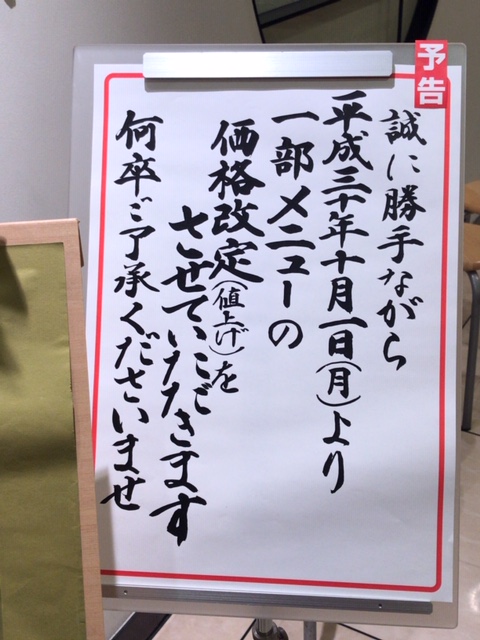 予告
誠に勝手ながら
平成三十年十月一日(月)より
一部メニューの
価格改定(値上げ)を
させていただきます
何卒ご了承くださいませ